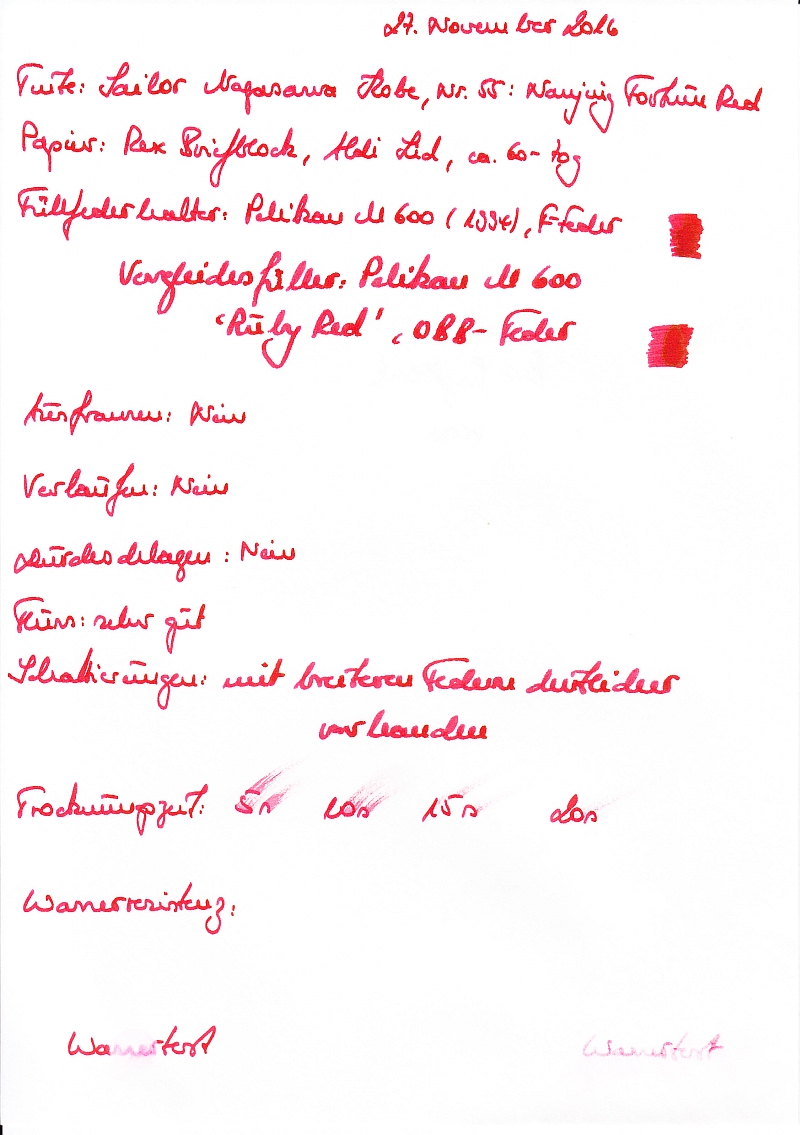 27. November 2016
Tinte: Sailor Nagasawa Kobe, Nr. 55: Nanjing Fortune Red
Papier: Rex Briefblock, Aldi Süd, ca. 60-70g
Füllfederhalter: Pelikan M 600 (1994), F-Feder
Vergleichsfüller: Pelikan M 600
'Ruby Red', OBB-Feder
Ausfransen: Nein
Verlaufen: Nein
Durchschlagen: Nein
Fluss: sehr gut
Schattierungen: mit breiteren Federn deutlicher
vorhanden
Trocknungszeit: 5s 10s 15s 20s
Wasserresistenz:
Wassertest Wassertest